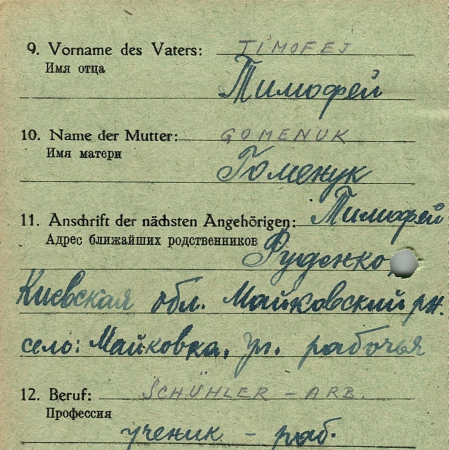 9. Vorname des Vaters: TIMOFEJ
Имя отца
Тимофей
10. Name der Mutter: GOMENUK
Имя матери
Гоменук
11. Anschrift der nächsten Angehörigen: Тимофей
Адрес ближайших родственников Руденко
Киевская обл. Майковский рн.
село: Майковка, ул. рабочья
12. Beruf: SCHÜHLER – ARB.
Профессия
ученик – раб.